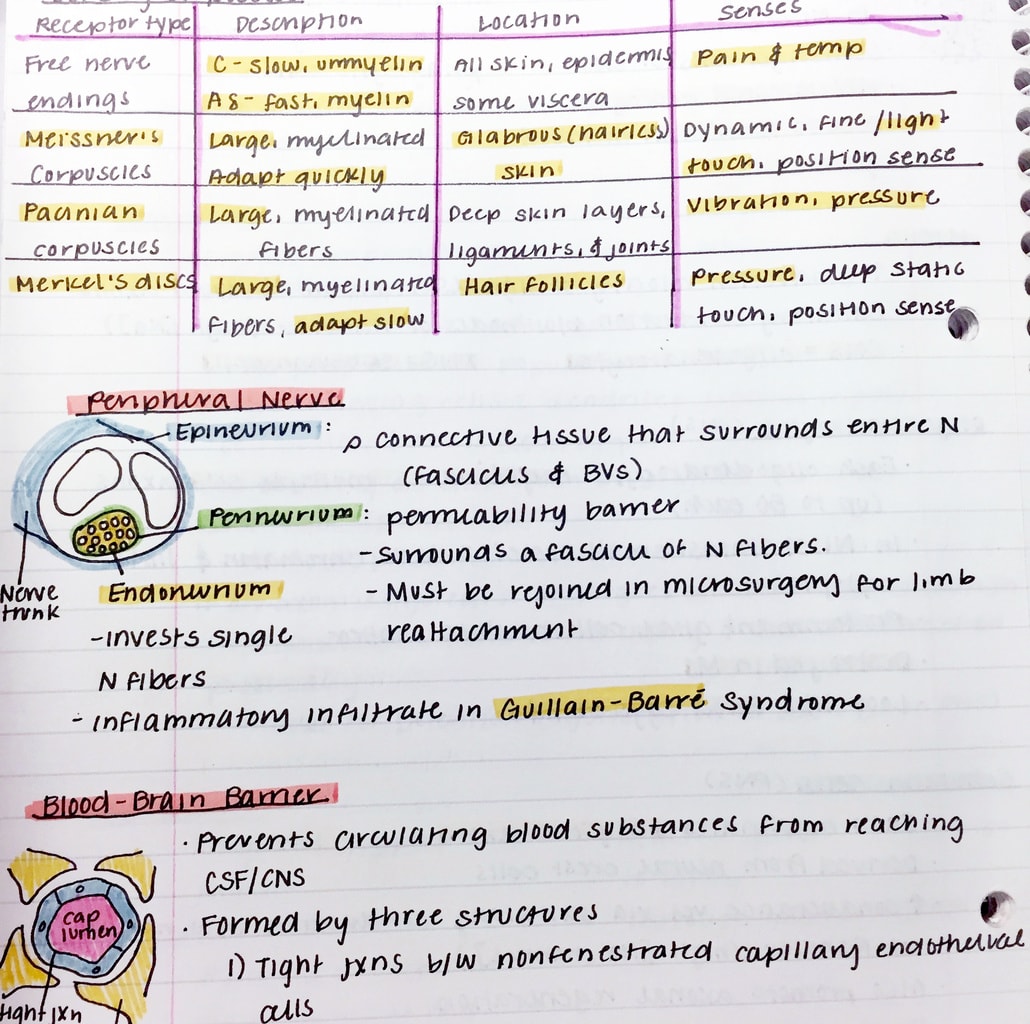 Receptor type Description Location Senses
Free nerve C-slow, unmyelin All skin, epidermis Pain & temp
endings Aδ- fast, myelin some viscera
Meissner's Large, myelinated Glabrous (hairless) Dynamic, fine/light
corpuscles Adapt quickly skin touch, position sense
Pacinian Large, myelinated Deep skin layers, Vibration, pressure
corpuscles fibers ligaments, & joints
Merkel's discs Large, myelinated Hair follicles Pressure, deep static
fibers, adapt slow touch, position sense
Peripheral Nerve
Epineurium: connective tissue that surrounds entire N
(fascicles & BVs)
Perineurium: permeability barrier
-surrounds a fascicle of N fibers.
Nerve trunk
Endoneurium - Must be rejoined in microsurgery for limb
-Invests single reattachment
N fibers
- Inflammatory infiltrate in Guillain-Barré Syndrome
Blood-Brain Barrier
· Prevents circulating blood substances from reaching
CSF/CNS
cap
lumen
· Formed by three structures
1) Tight jxns b/w nonfenestrated capillary endothelial
cells
tight jxn